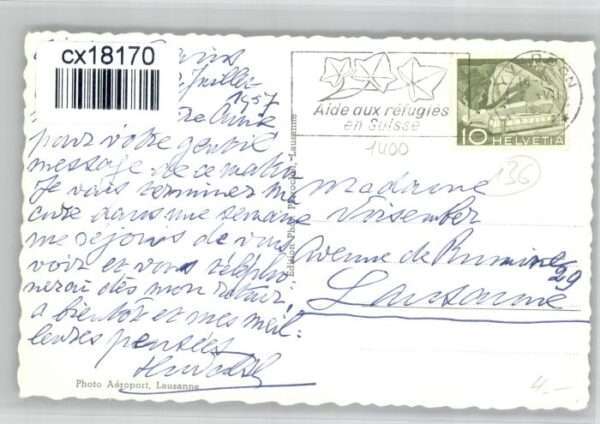 cx18170
Juillet
1957
pour votre gentil
message de ce matin
Je vais terminer ma
cure dans une semaine
me réjouis de vous
voir et vous télépho
nerai dès mon retour.
a bientôt et mes meil:
leures pensées
Photo Aéroport, Lausanne
Edition Photo Perrochet, Lausanne
Aide aux réfugiés
en Suisse
10 HELVETIA
1400
136
Madame
Avenue de Rumine 29
Lausanne
4.-